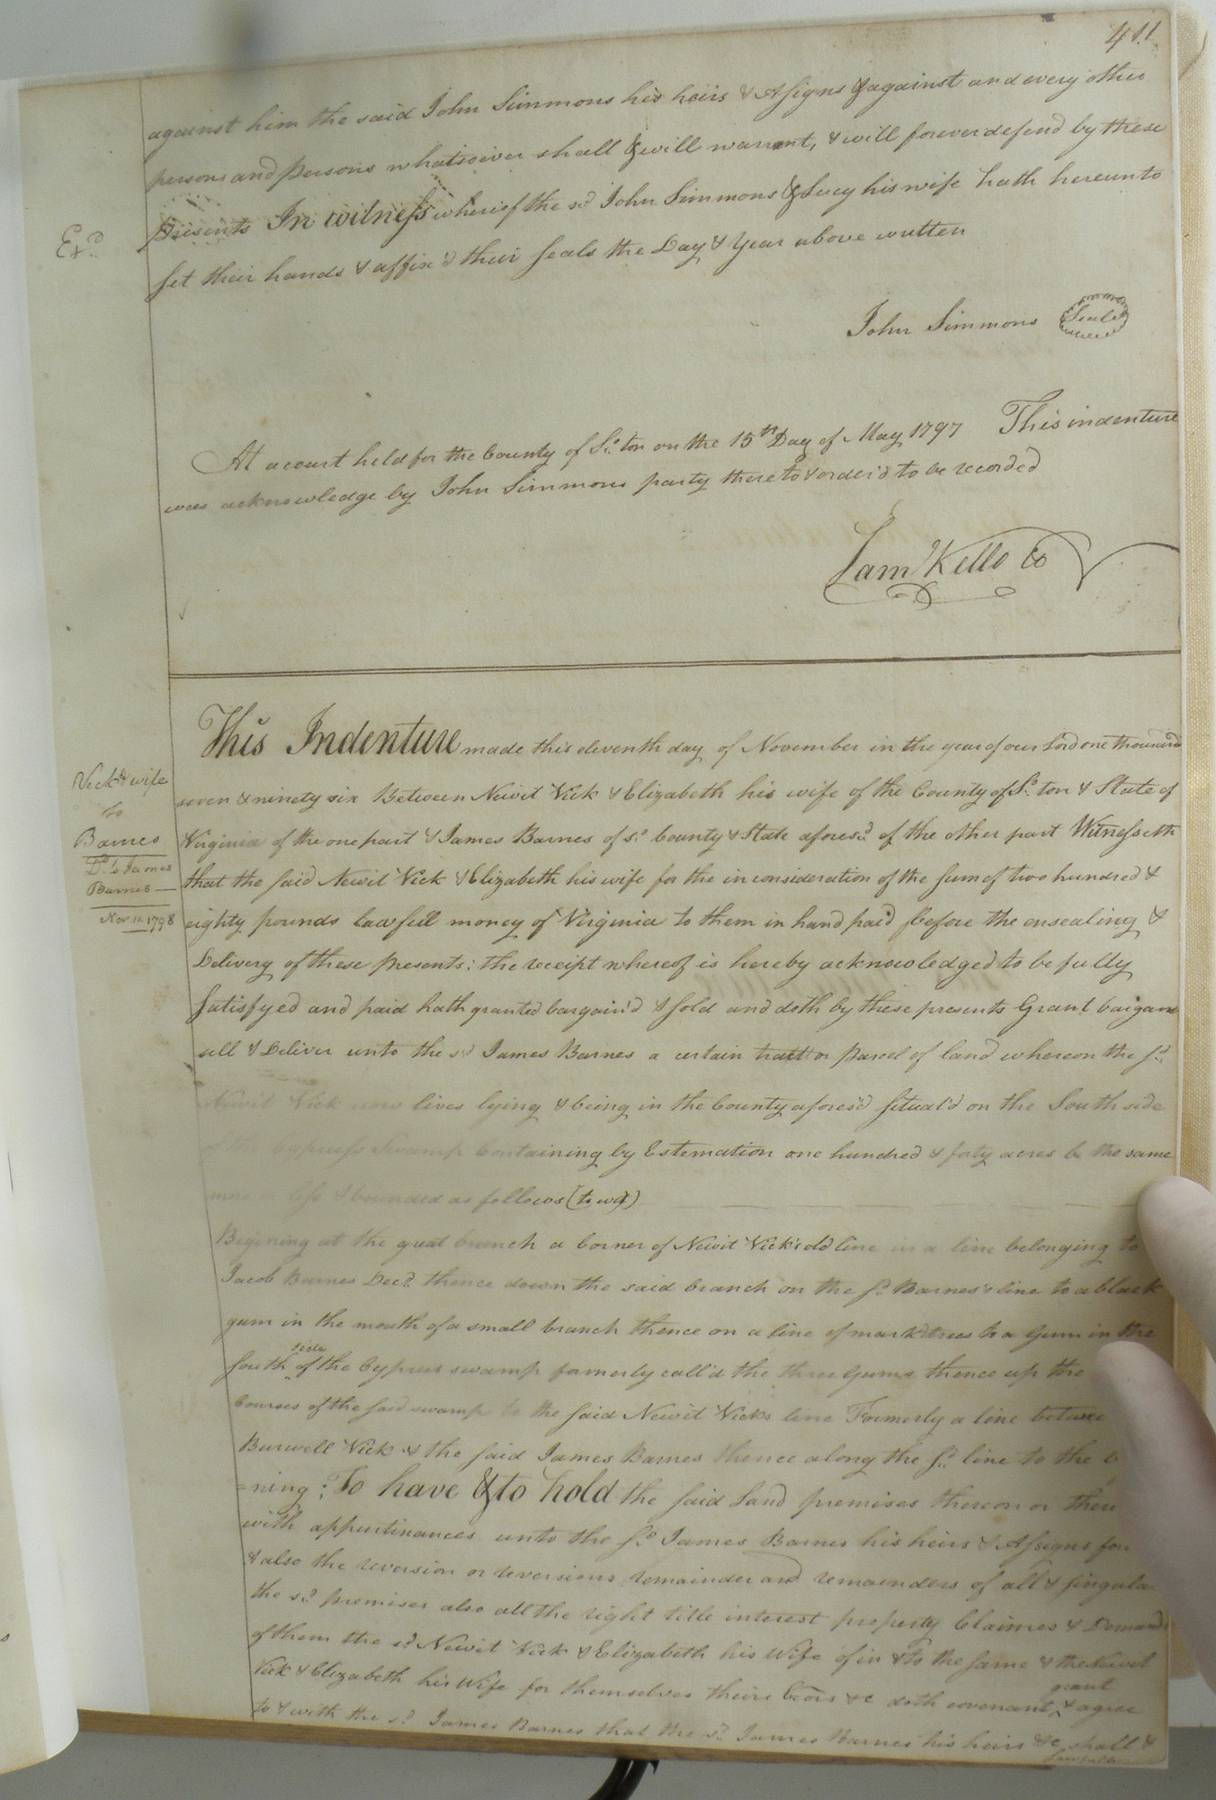 411
against him the said John Simmons his heirs & Assigns & against and every other
persons and persons whatsoever shall & will warrant, & will forever defend by these
Ex.d
presents In witness whereof the sd. John Simmons & Lucy his wife hath hereunto
set their hands & affix'd their seals the Day & Year above written
John Simmons Seal
At a court held for the County of So.ton on the 15th Day of May 1797 This indenture
was acknowledge by John Simmons party thereto & order'd to be recorded
Saml Kello Co
This Indenture made this eleventh day of November in the year of our Lord one thousand
Vick & wife
to
Barnes
Dd. to James
Barnes
Nov 12 1798
seven & ninety six Between Newit Vick & Elizabeth his wife of the County of So.ton & State of
Virginia of the one part & James Barnes of sd. County & State aforesd. of the other part Witnesseth
that the said Newit Vick & Elizabeth his wife for the in consideration of the sum of two hundred &
eighty pounds lawfull money of Virginia to them in hand paid before the ensealing &
Delivery of these presents: the receipt whereof is hereby acknowledged to be fully
satisfyed and paid hath granted bargain'd & sold and doth by these presents Grant bargain
sell & Deliver unto the sd James Barnes a certain tract or parcel of land whereon the sd.
Newit Vick now lives lying & being in the County afores'd situat'd on the South side
Cypress Swamp Containing by Estemation one hundred & forty acres be the same
more or less & bounded as follows (to wit)
Begining at the great branch a corner of Newit Vick's old line in a line belonging to
Jacob Barnes Decd. thence down the said branch on the sd. Barnes's line to a black
gum in the mouth of a small branch thence on a line of mark'd trees to a Gum in the
South side of the Cypress swamp formerly call'd the three Gums thence up the
Courses of the said swamp to the said Newit Vicks line Formerly a line betwee
Burwell Vick & the said James Barnes thence along the sd. line to the b
=ning: To have & to hold the said Land premises thereon or there
with appurtinances unto the sd. James Barnes his heirs & Assigns for
& also the reversion or reversions remainder and remainders of all & singula
the sd. premises also all the right title interest property Claimes & Demands
of them the sd. Newit Vick & Elizabeth his Wife of in & to the same & the Newit
Vick & Elizabeth his Wife for themselves theire heirs &c doth covenant grant & agree
to & with the sd. James Barnes that the sd. James Barnes his heirs &c shall &